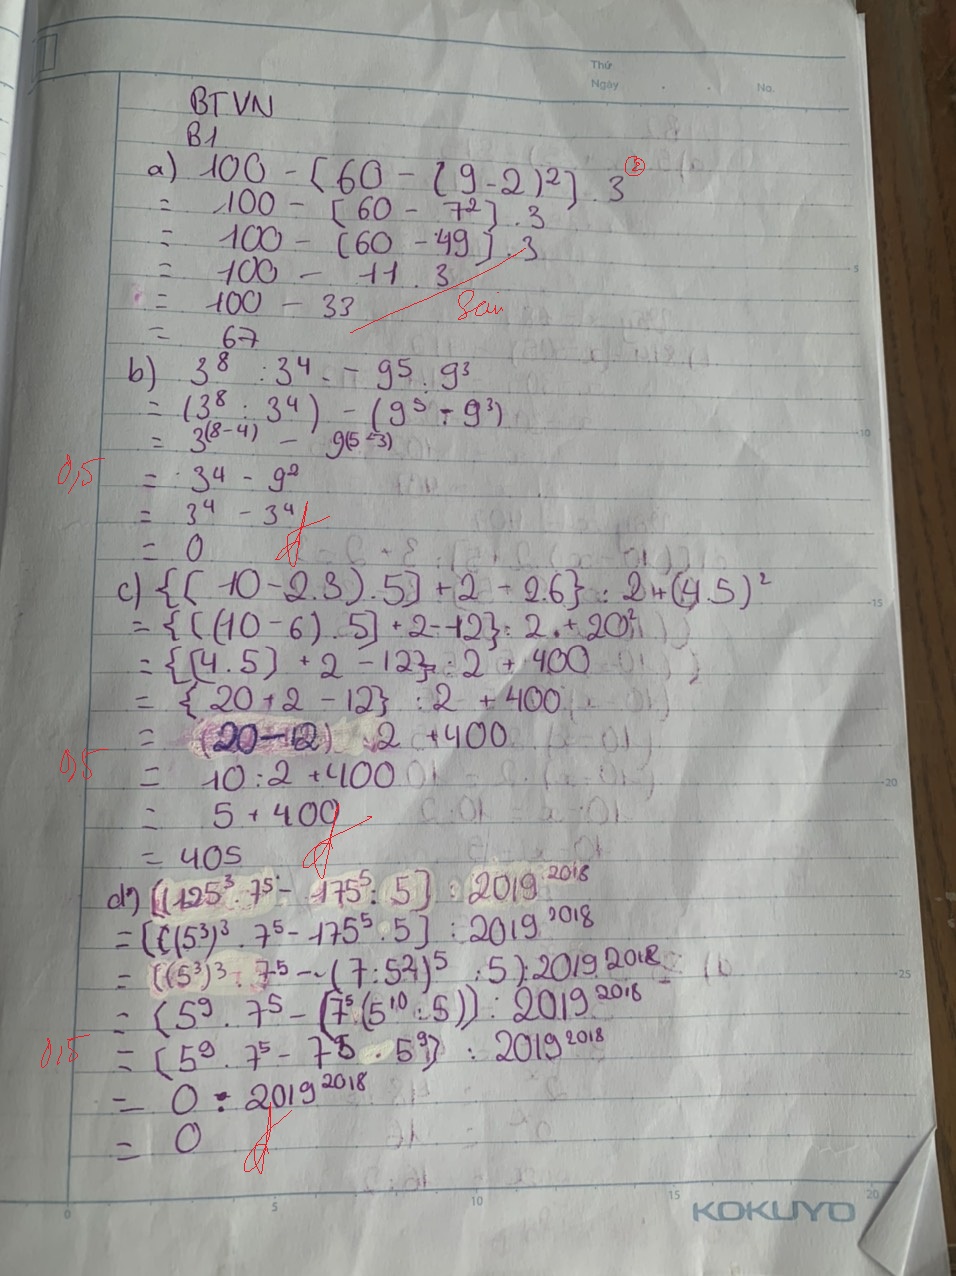 Thứ
Ngày . . No.
BTVN
B1
a) 100 - [60 - (9-2)²] . 3 ②
= 100 - [60 - 7²] . 3
= 100 - [60 - 49] . 3
= 100 - 11 . 3
= 100 - 33 Sai
= 67
b) 3⁸ : 3⁴ - 9⁵ : 9³
= (3⁸ : 3⁴) - (9⁵ : 9³)
= 3⁽⁸⁻⁴⁾ - 9⁽⁵⁻³⁾
0,5 = 3⁴ - 9²
= 3⁴ - 3⁴
= 0 đ
c) {[(10-2.3).5] + 2 - 2.6} : 2 + (4.5)²
= {[(10-6).5] + 2 - 12} : 2 + 20²
= {[4.5] + 2 - 12} : 2 + 400
= {20 + 2 - 12} : 2 + 400
= (20-12) : 2 + 400
0,5 = 10 : 2 + 400
= 5 + 400
= 405 đ
d) [(125³ . 7⁵ - 175⁵ : 5] : 2019²⁰¹⁸
= [((5³)³ . 7⁵ - 175⁵ : 5] : 2019²⁰¹⁸
= [((5³)³ . 7⁵ - (7:5²)⁵ : 5) : 2019²⁰¹⁸
= (5⁹ . 7⁵ - (7⁵(5¹⁰ : 5)) : 2019²⁰¹⁸
0,5 = (5⁹ . 7⁵ - 7⁵ . 5⁹) : 2019²⁰¹⁸
= 0 : 2019²⁰¹⁸
= 0 đ
0 5 10 15 20
KOKUYO